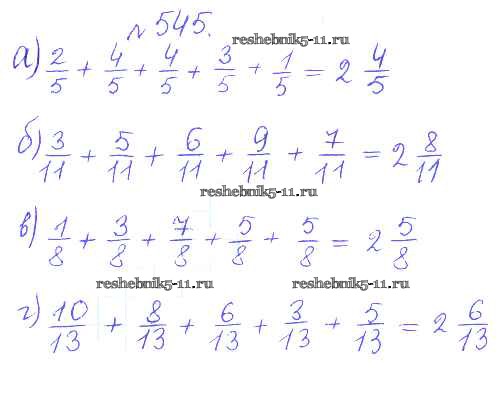 № 545.
reshebnik5-11.ru
а) 2/5 + 4/5 + 4/5 + 3/5 + 1/5 = 2 4/5
б) 3/11 + 5/11 + 6/11 + 9/11 + 7/11 = 2 8/11
reshebnik5-11.ru
в) 1/8 + 3/8 + 7/8 + 5/8 + 5/8 = 2 5/8
reshebnik5-11.ru reshebnik5-11.ru
г) 10/13 + 8/13 + 6/13 + 3/13 + 5/13 = 2 6/13